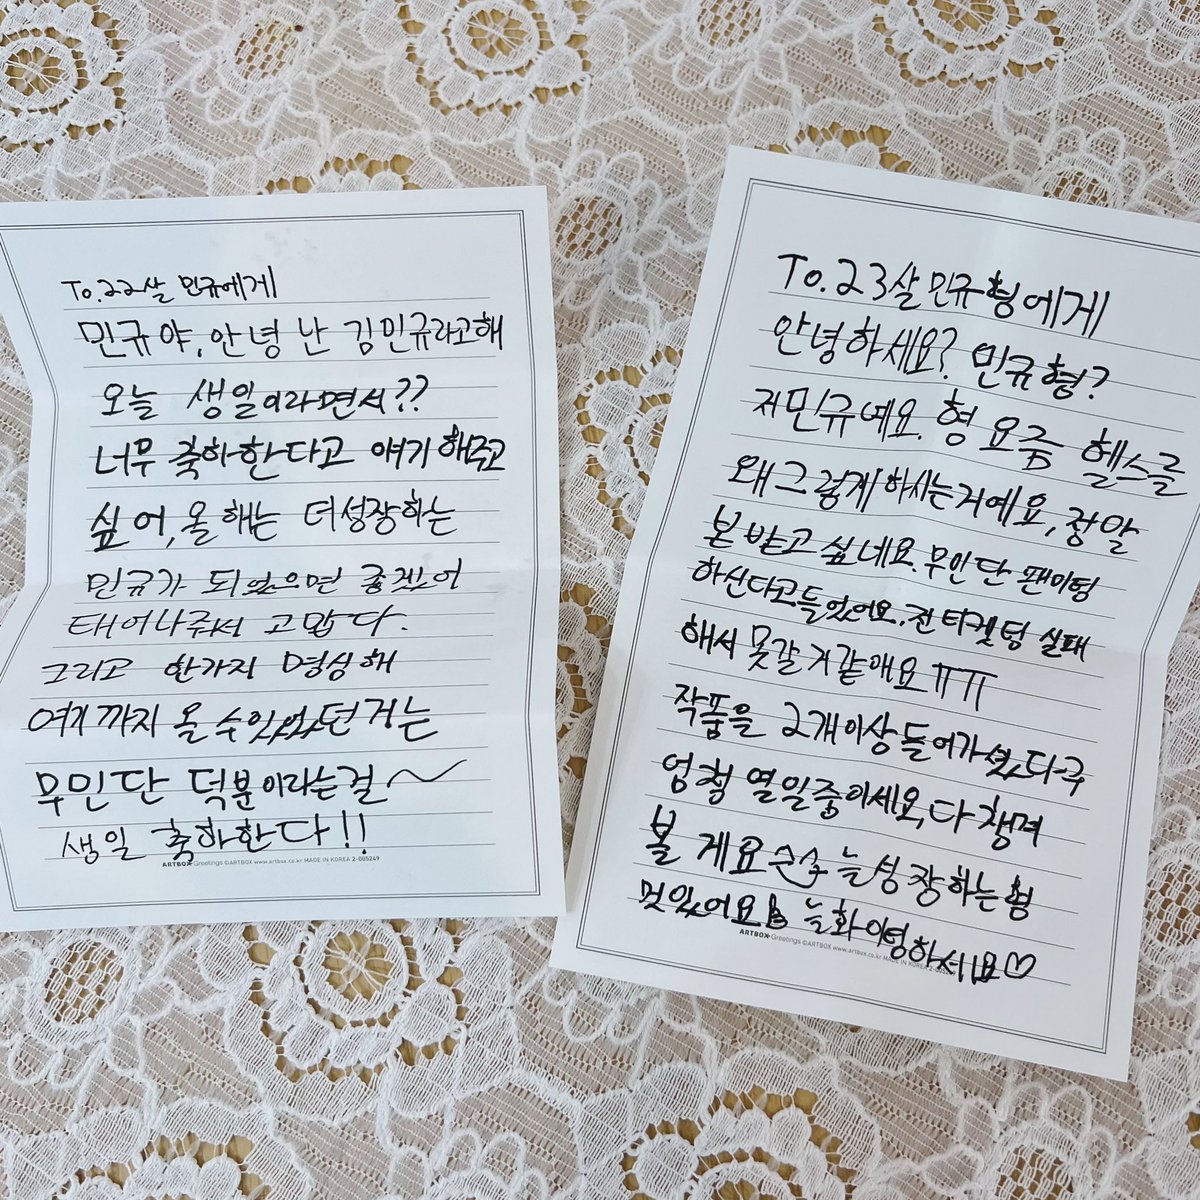 To.22살 민규에게
민규야, 안녕 난 김민규라고해
오늘 생일이라면서??
너무 축하한다고 얘기 해주고
싶어, 올해는 더성장하는
민규가 되었으면 좋겠어
태어나줘서 고맙다.
그리고 한가지 명심해
여기까지 올 수있었던거는
무민단 덕분이라는걸~
생일 축하한다!!
ARTBOX Greetings ©ARTBOX www.artbox.co.kr MADE IN KOREA 2-005249
To.23살 민규형에게
안녕하세요? 민규형?
저민규예요. 형 요즘 헬스를
왜그렇게 하시는거예요, 정말
본받고 싶네요. 무민단 팬미팅
하신다고들었어요. 전 티켓팅 실패
해서 못갈거같애요ㅠㅠ
작품을 2개이상 들어가셨다구
엄청 열일중이세요, 다 챙겨
볼게요 늘성장하는형
멋있어요 늘화이팅하세요♡
ARTBOX Greetings ©ARTBOX www.artbox.co.kr MADE IN KOREA